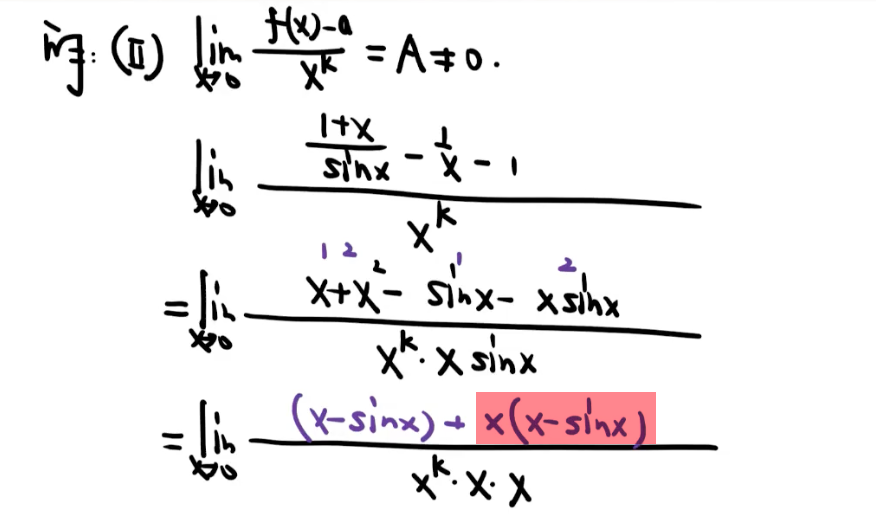 解: (II) lim x→0 (f(x)-a)/x^k = A ≠ 0.
lim x→0 ((1+x)/sinx - 1/x - 1)/x^k
1 2 1 2
= lim x→0 (x+x² - sinx - xsinx)/(x^k · x sinx)
= lim x→0 ((x-sinx) + x(x-sinx))/(x^k · x · x)